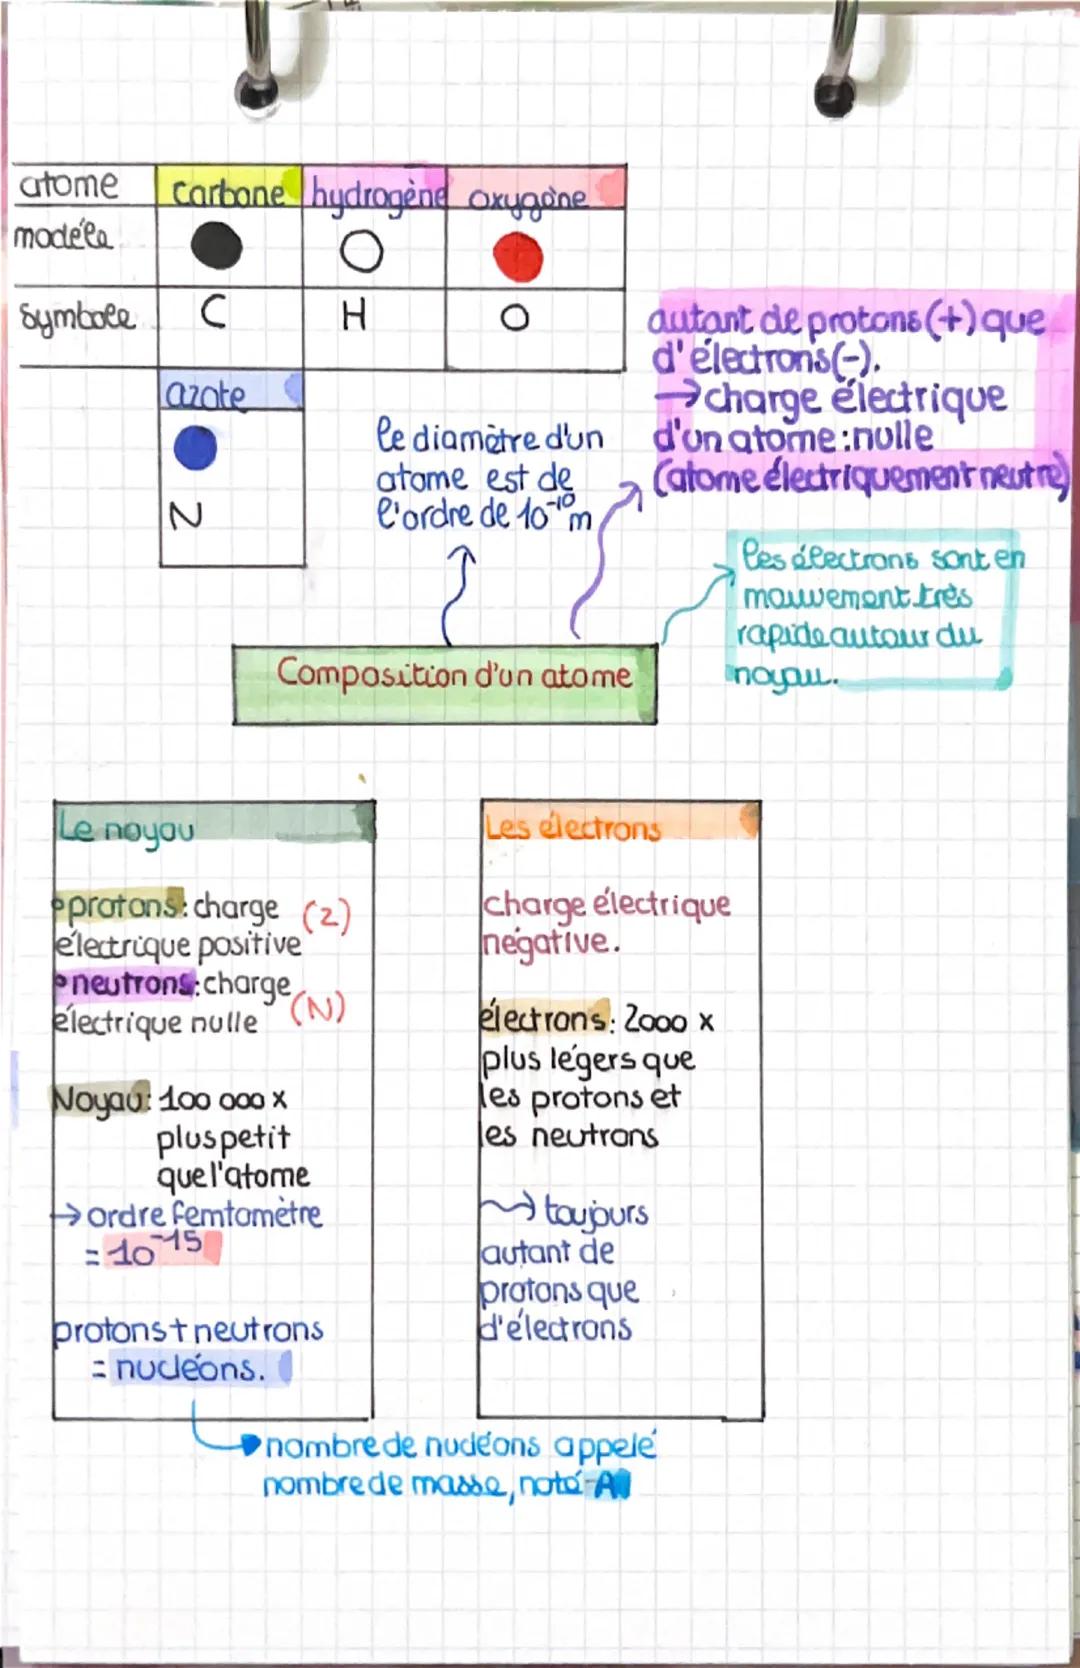 atome carbone hydrogène oxygène
modèle
symbole C H O
azote
N
le diamètre d'un
atome est de
l'ordre de 10⁻¹⁰m
autant de protons(+) que
d'électrons(-).
→charge électrique
d'un atome: nulle
(atome électriquement neutre)
les électrons sont en
mouvement très
rapide autour du
noyau.
Composition d'un atome
Le noyau
protons: charge (z)
électrique positive
neutrons: charge
électrique nulle (N)
Noyau: 100 000 x
plus petit
que l'atome
→ ordre femtomètre
= 10⁻¹⁵
protons + neutrons
= nucléons.
nombre de nucléons appelé
nombre de masse, noté A
Les électrons
charge électrique
négative.
électrons: 2000 x
plus légers que
les protons et
les neutrons
→ toujours
autant de
protons que
d'électrons